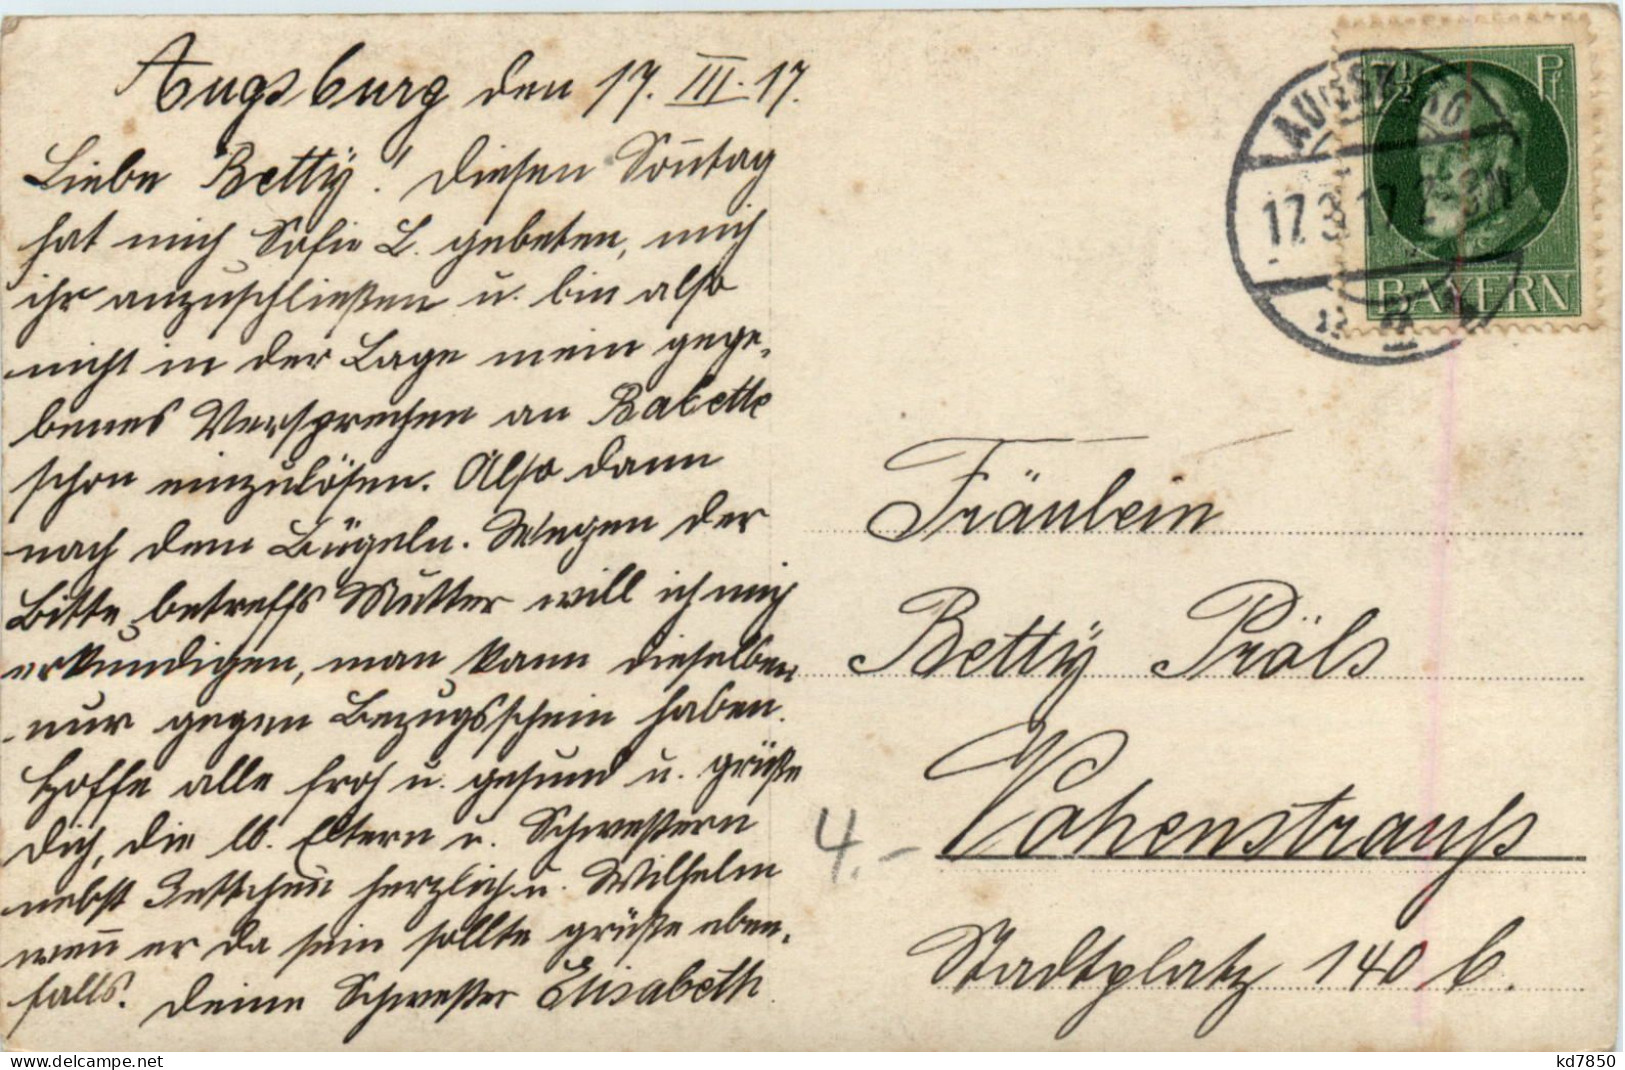 Augsburg den 17. III. 17.
Liebe Betty! Diesen Son̄tag
hat mich Sofie L. gebeten, mich
ihr anzuschließen u. bin also
nicht in der Lage mein gege-
benes Versprechen an Babette
schon einzulösen. Also dann
nach dem Bügeln. Wegen der
Bitte betreffs Mutter will ich mich
erkundigen, man kann dieselben
nur gegen Bezugsschein haben.
Hoffe alle froh u. gesund u. grüße
Dich, die lb. Eltern u. Schwestern
nebst Tettchen herzlich u. Wilhelm
wen̄ er da sein sollte grüße eben-
falls. Deine Schwester Elisabeth.
7½ Pf
BAYERN
AUGSBURG
17.3.17. 2-3N
Fräulein
Betty Pröls
Vohenstrauß
Stadtplatz 140 b.
4.-
www.delcampe.net
kd7850